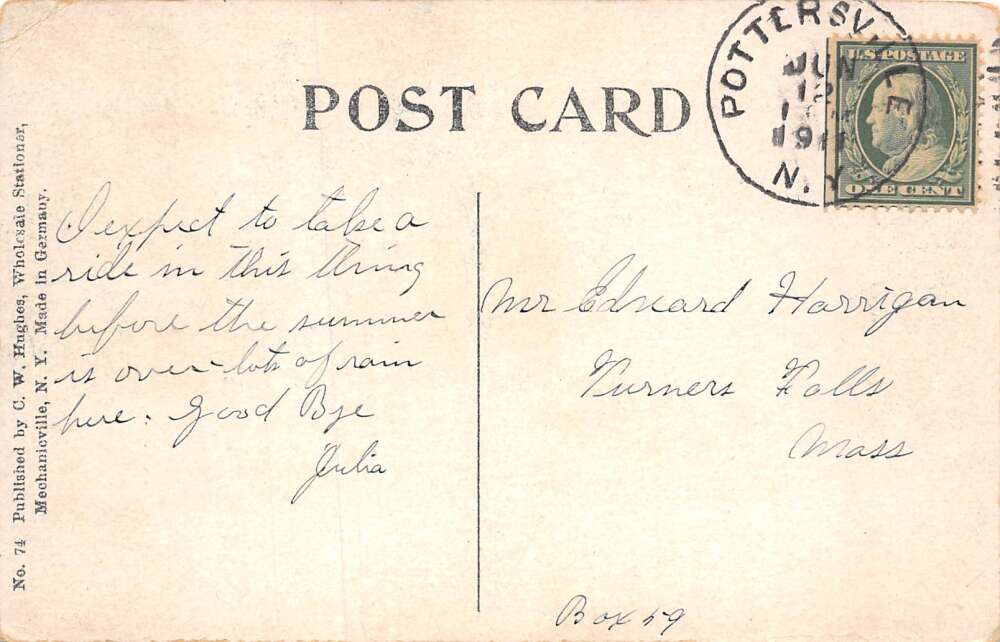 POST CARD
POTTERSVILLE
JUN
12
191
N. Y.
U.S. POSTAGE
ONE CENT
I expect to take a
ride in this thing
before the summer
is over - lots of rain
here. Good Bye
Julia
Mr Edward Harrigan
Turners Falls
Mass
Box 59
No. 74 Published by C. W. Hughes, Wholesale Stationer,
Mechanicville, N. Y. Made in Germany.